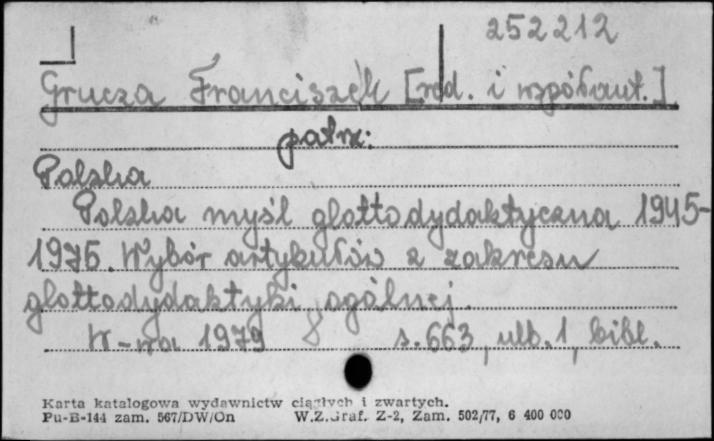 252212
Grucza Franciszek [red. i współaut.]
patrz:
Polska
Polska myśl glottodydaktyczna 1945-
1975. Wybór artykułów z zakresu
glottodydaktyki ogólnej.
W-wa 1979 8° s. 663, nlb. 1, bibl.
Karta katalogowa wydawnictw ciągłych i zwartych.
Pu-B-144 zam. 567/DW/On W.Z.Graf. Z-2, Zam. 502/77, 6 400 000